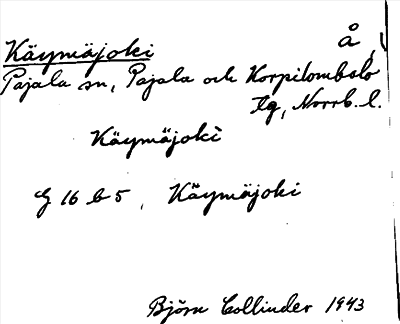 Käymäjoki Å
Pajala sn, Pajala och Korpilombolo
tg, Norrb. l.
Käymäjoki
G 16 b 5, Käymäjoki
Björn Collinder 1943